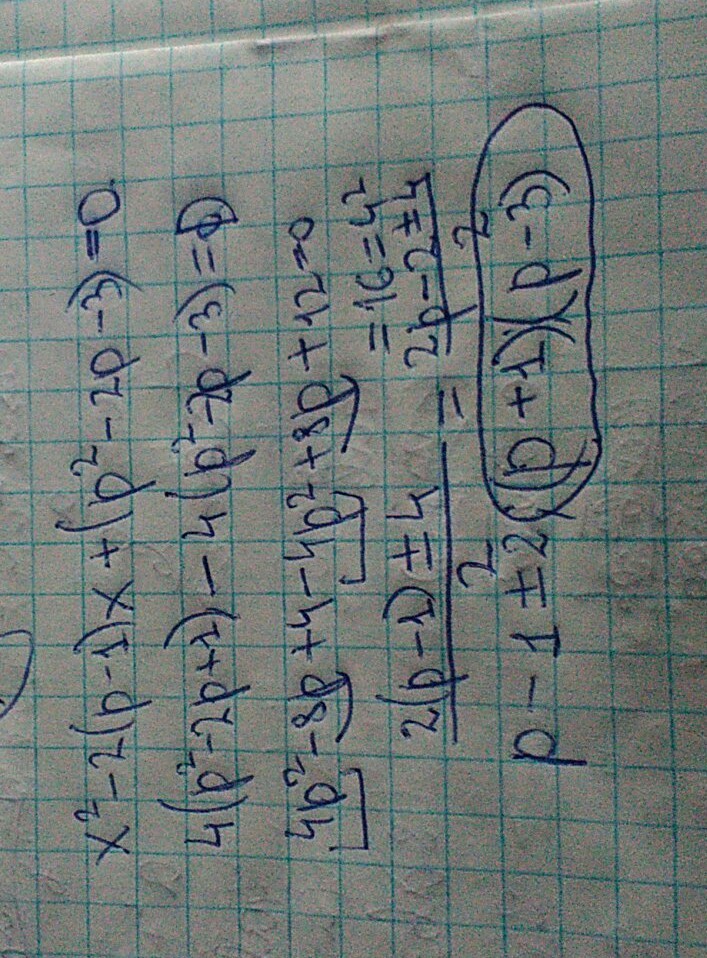 x² - 2(p-1)x + (p² - 2p - 3) = 0
4(p² - 2p + 1) - 4(p² - 2p - 3) = D
4p² - 8p + 4 - 4p² + 8p + 12 = 0
= 16 = 4²
2(p-1) ± 4 / 2 = 2p - 2 ± 4 / 2
p - 1 ± 2 (p+1)(p-3)